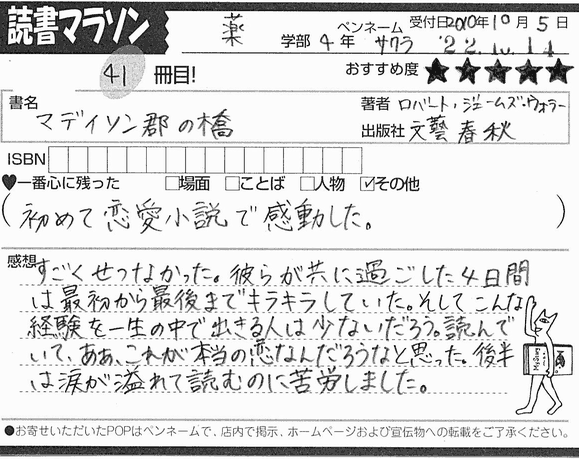 読書マラソン
薬 学部 4年
ペンネーム サクラ
受付日2010年10月5日
'22.10.14
41 冊目!
おすすめ度 ★★★★★
書名 マディソン郡の橋
著者 ロバート・ジェームズ・ウォラー
出版社 文藝春秋
ISBN
♥一番心に残った □場面 □ことば □人物 ☑その他
(初めて恋愛小説で感動した。)
感想 すごくせつなかった。彼らが共に過ごした4日間
は最初から最後までキラキラしていた。そしてこんな
経験を一生の中で出きる人は少ないだろう。読んで
いて、ああ、これが本当の恋なんだろうなと思った。後半
は涙が溢れて読むのに苦労しました。
●お寄せいただいたPOPはペンネームで、店内で掲示、ホームページおよび宣伝物への転載をご了承ください。